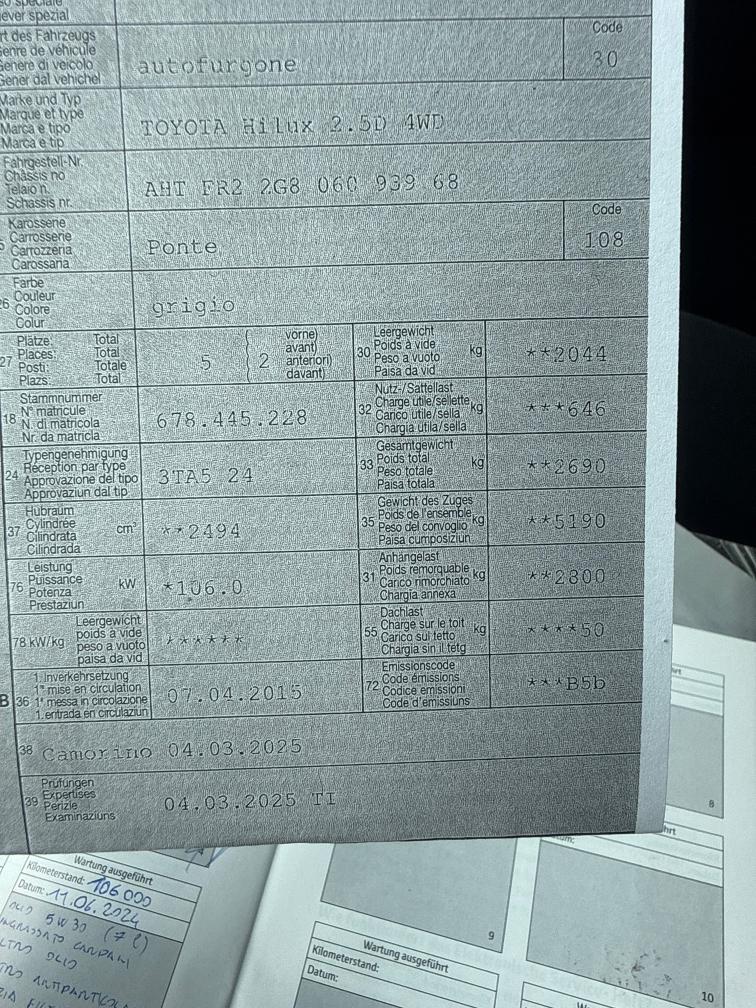 ever spezial
Code
rt des Fahrzeugs
enre de véhicule
Genere di veicolo
Gener dal vehichel
autofurgone
30
Marke und Typ
Marque et type
Marca e tipo
Marca e tip
TOYOTA Hilux 2.5D 4WD
Fahrgestell-Nr.
Châssis no
Telaio n.
Schassis nr.
AHT FR2 2G8 060 939 68
Code
Karosserie
Carrosserie
Carrozzeria
Carossaria
Ponte
108
26
Farbe
Couleur
Colore
Colur
grigio
27
Plätze: Total
Places: Total
Posti: Totale
Plazs: Total
5
2
vorne)
avant)
anteriori)
davant)
30
Leergewicht
Poids à vide
Peso a vuoto
Paisa da vid
kg
**2044
18
Stammnummer
N° matricule
N. di matricola
Nr. da matricla
678.445.228
32
Nutz-/Sattellast
Charge utile/sellette
Carico utile/sella
Chargia utila/sella
kg
***646
24
Typengenehmigung
Réception par type
Approvazione del tipo
Approvaziun dal tip
3TA5 24
33
Gesamtgewicht
Poids total
Peso totale
Paisa totala
kg
**2690
37
Hubraum
Cylindrée
Cilindrata
Cilindrada
cm³
**2494
35
Gewicht des Zuges
Poids de l'ensemble
Peso del convoglio
Paisa cumposiziun
kg
**5190
76
Leistung
Puissance
Potenza
Prestaziun
kW
*106.0
31
Anhängelast
Poids remorquable
Carico rimorchiato
Chargia annexa
kg
**2800
78 kW/kg
Leergewicht
poids à vide
peso a vuoto
paisa da vid
******
55
Dachlast
Charge sur le toit
Carico sul tetto
Chargia sin il tetg
kg
****50
B
36
1. Inverkehrsetzung
1re mise en circulation
1a messa in circolazione
1. entrada en circulaziun
07.04.2015
72
Emissionscode
Code émissions
Codice emissioni
Code d'emissiuns
***B5b
38
Camorino 04.03.2025
39
Prüfungen
Expertises
Perizie
Examinaziuns
04.03.2025 TI
8
Wartung ausgeführt
Kilometerstand: 106 000
Datum: 11.06.2024
OLIO 5W30 (7 l)
INGRASSATO CARDANI
OLIO
9
Wartung ausgeführt
Kilometerstand:
Datum:
10